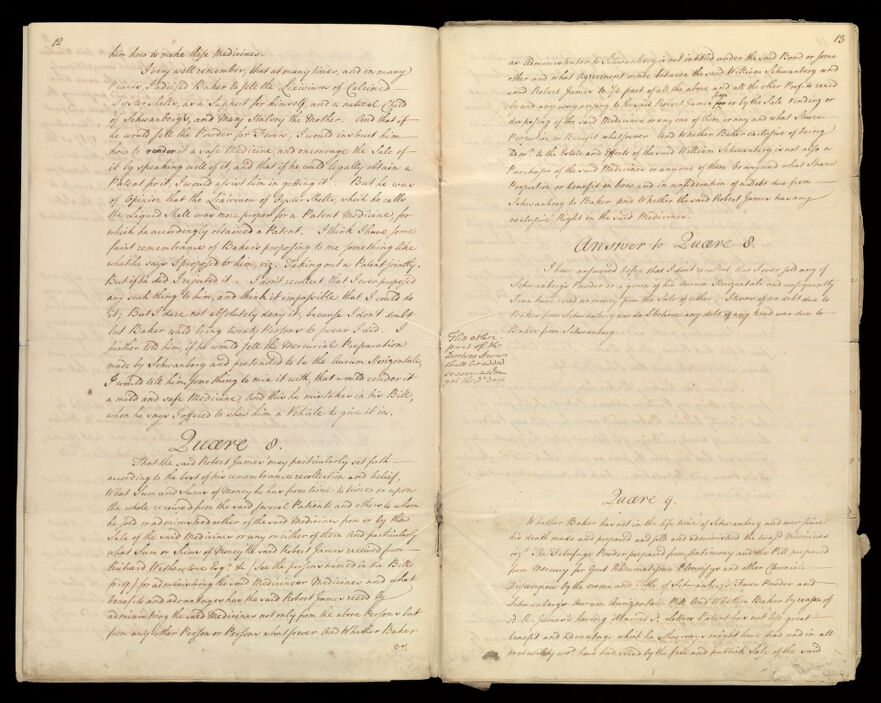 12
him how to make these Medicines.
I very well remember, that at many times, and in many
Places, I advised Baker to sell the Lixivium of Calcined
Oyster shells, as a Support for himself, and a natural Child
of Schwanberg's, and Mary Stalvey the Mother. And that if
he would sell the Powder for Fevers, I would instruct him
how to render it a safe Medicine, and encourage the Sale of
it by speaking well of it, and that if he could legally obtain a
Patent for it, I would assist him in getting it. But he was
of Opinion that the Lixivium of Oyster Shells, which he calls
the Liquid Shell was more proper for a Patent Medicine, for
which he accordingly obtained a Patent. I think I have some
faint remembrance of Baker's proposing to me something like
what he says I proposed to him, viz. Taking out a Patent jointly.
But if he did I rejected it. I don't recollect that I ever proposed
any such thing to him, and think it impossible that I could do
it; But I dare not absolutely deny it, because I don't doubt
but Baker could bring twenty Persons to swear I did. I
further told him, if he would sell the Mercurial Preparation
made by Schwanberg and pretended to be the Aurum Horizontale,
I would tell him something to mix it with, that would render it
a mild and safe Medicine; And this he mistakes in his Bill,
when he says I offered to shew him a Vehicle to give it in.
Quære 8.
That the said Robert James may particularly set forth
according to the best of his remembrance recollection and belief,
What Sum and Sums of Money he has from time to time or upon
the whole received from the said several Patients and others to whom
he sold or administred either of the said Medicines from or by the
Sale of the said Medicines or any or either of them And particularly
what Sum or Sums of Money the said Robert James received from
Richard Wetherstone Esqr. &c (See the persons named in the Bill
fo. 9) for administring the said Medicine or Medicines and what
benefits and advantages has the said Robert James reced by
administring the said Medicines not only from the above Persons but
from any other Person or Persons whatsoever And Whether Baker
as
13
as Administrator to Schwanberg is not intitled under the said Bond or some
other and what Agreement made between the said William Schwanberg and
said Robert James to ½ part of all the above and all the other Profits reced
by and any way arising to the said Robert James from or by the Sale Vending or
disposing of the said Medicines or any one of them or any and what Share
Proportion or Benefit whatsoever And Whether Baker exclusive of being
Admr. to the Estate and Effects of the said William Schwanberg is not also a
Purchaser of the said Medicines or any one of them or any and what Share
Proportion or benefit in them and in consideration of a Debt due from
Schwanberg to Baker and Whether the said Robert James has any
exclusive Right in the said Medicines.
Answer to Quære 8.
I have answered before that I don't recollect, that I ever sold any of
Schwanberg's Powder or a grain of his Aurum Horizontale and consequently
I can have reced no money from the Sale of either. I know of no debt due to
Baker from Schwanberg nor do I believe any debt of any kind was due to
Baker from Schwanberg.
The other
part of the
Doctors Answer
shall be added
so soon as I can
Quære 9.
Whether Baker has not in the life time of Schwanberg and ever since
his death made and prepared and sold and administred the two sd. Medicines
vizt. The Febrifuge Powder prepared from Antimony and the Pill prepared
from Mercury for Gout Rheumatism Pleurisys and other Chronicle
Distempers by the name and Title of Schwanberg's Fever Powder and
Schwanberg's Aurum Horizontale Pill And Whether Baker by reason of
sd. R. James's having obtained sd. Letters Patent has not lost great
benefit and advantage which he otherways might have had and in all
probability wod. have had, reced by the free and publick Sale of the said